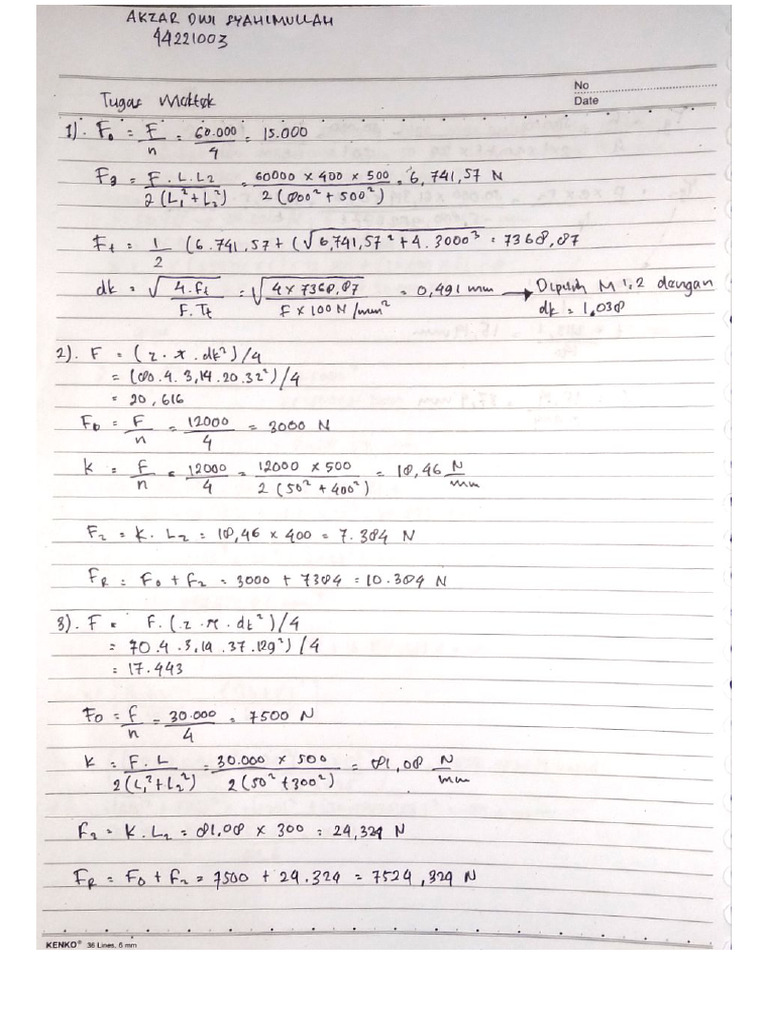 AKZAR DWI SYAHIMULLAH
44221003
No
Date
Tugas Moktek
1). F₀ = F/n = 60.000/4 = 15.000
F₂ = F . L . L2 / 2(L₁² + L₂²) = 60000 x 400 x 500 / 2(800² + 500²) = 6,741,57 N
Ft = 1/2 (6.741,57 + (√6,741,57² + 4.3000³ = 7368,87
dk = √4.Ft / F.Tt = √4 x 7368,87 / F x 100 N/mm² = 0,491 mm → Dipilih M 1,2 dengan
dk = 1,038
2). F = (z . π . dk²)/4
= (80.4.3,14.20.32²)/4
= 20,616
F₀ = F/n = 12000/4 = 3000 N
k = F/n = 12000/4 = 12000 x 500 / 2(50² + 400²) = 18,46 N/mm
F₂ = K . L₂ = 18,46 x 400 = 7.384 N
FR = F₀ + F₂ = 3000 + 7384 = 10.384 N
3). F = F.(z . π . dt²)/4
= 70.4.3,14.37.129²)/4
= 17.443
F₀ = F/n = 30.000/4 = 7500 N
k = F.L / 2(L₁² + L₂²) = 30.000 x 500 / 2(50² + 300²) = 81,08 N/mm
F₂ = K . L₂ = 81,08 x 300 = 24,324 N
FR = F₀ + F₂ = 7500 + 24.324 = 7524,324 N
KENKO® 36 Lines, 6 mm